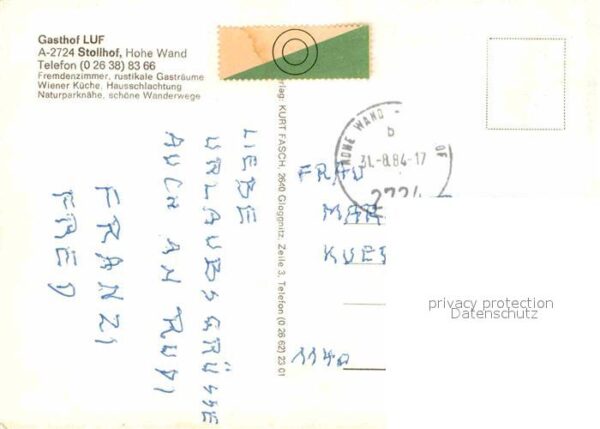 Gasthof LUF
A-2724 Stollhof, Hohe Wand
Telefon (0 26 38) 83 66
Fremdenzimmer, rustikale Gasträume
Wiener Küche, Hausschlachtung
Naturparknähe, schöne Wanderwege
LIEBE
URLAUBSGRÜSSE
AUCH AN RUDI
FRANZI
FRED
rlag: KURT FASCH, 2640 Gloggnitz, Zeile 3, Telefon (0 26 62) 23 01
HOHE WAND -
OF
b
31.-8.84-17
2724
FRAU
MAR
KUES
1140
privacy protection
Datenschutz